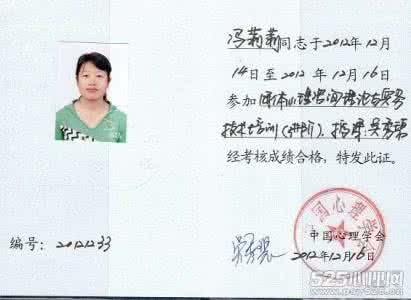 冯莉莉同志于2012年12月
14日至2012年12月16日
参加团体心理咨询理论与实务
技术培训(进阶).
经考核成绩合格，特发此证。
中国心理学会
中国心理学会
编号：20121233
2012年12月16日
525心理网
www.psy525.cn